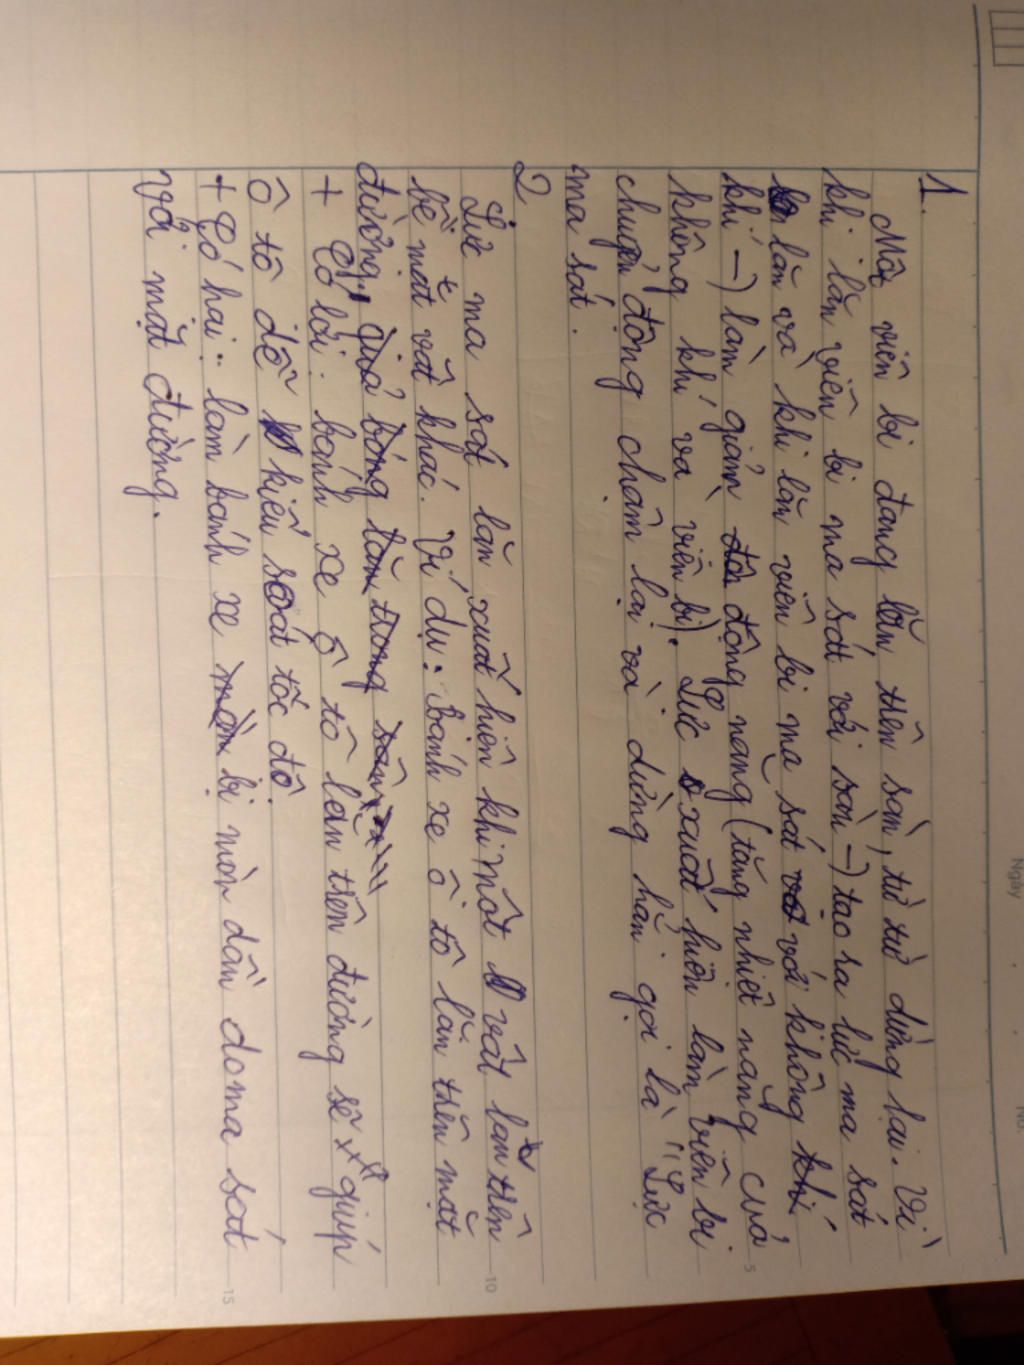 Ngày
No.
1.
Một viên bi đang lăn trên sàn, từ từ dừng lại. Vì
khi lăn viên bi ma sát với sàn → tạo ra lực ma sát
lăn và khi lăn viên bi ma sát với không khí
khí → làm giảm động năng (tăng nhiệt năng của
không khí và viên bi). Lực xuất hiện làm viên bi
chuyển động chậm lại và dừng hẳn gọi là "Lực
ma sát.
2
Lực ma sát lăn xuất hiện khi một vật lăn trên
bề mặt vật khác. Ví dụ: Bánh xe ô tô lăn trên mặt
đường, quả bóng lăn trong sân
+ Có lợi: bánh xe ô tô lăn trên đường sẽ giúp
ô tô dễ kiểm soát tốc độ
+ Có hại: làm bánh xe bị mòn dần do ma sát
với mặt đường.
5
10
15